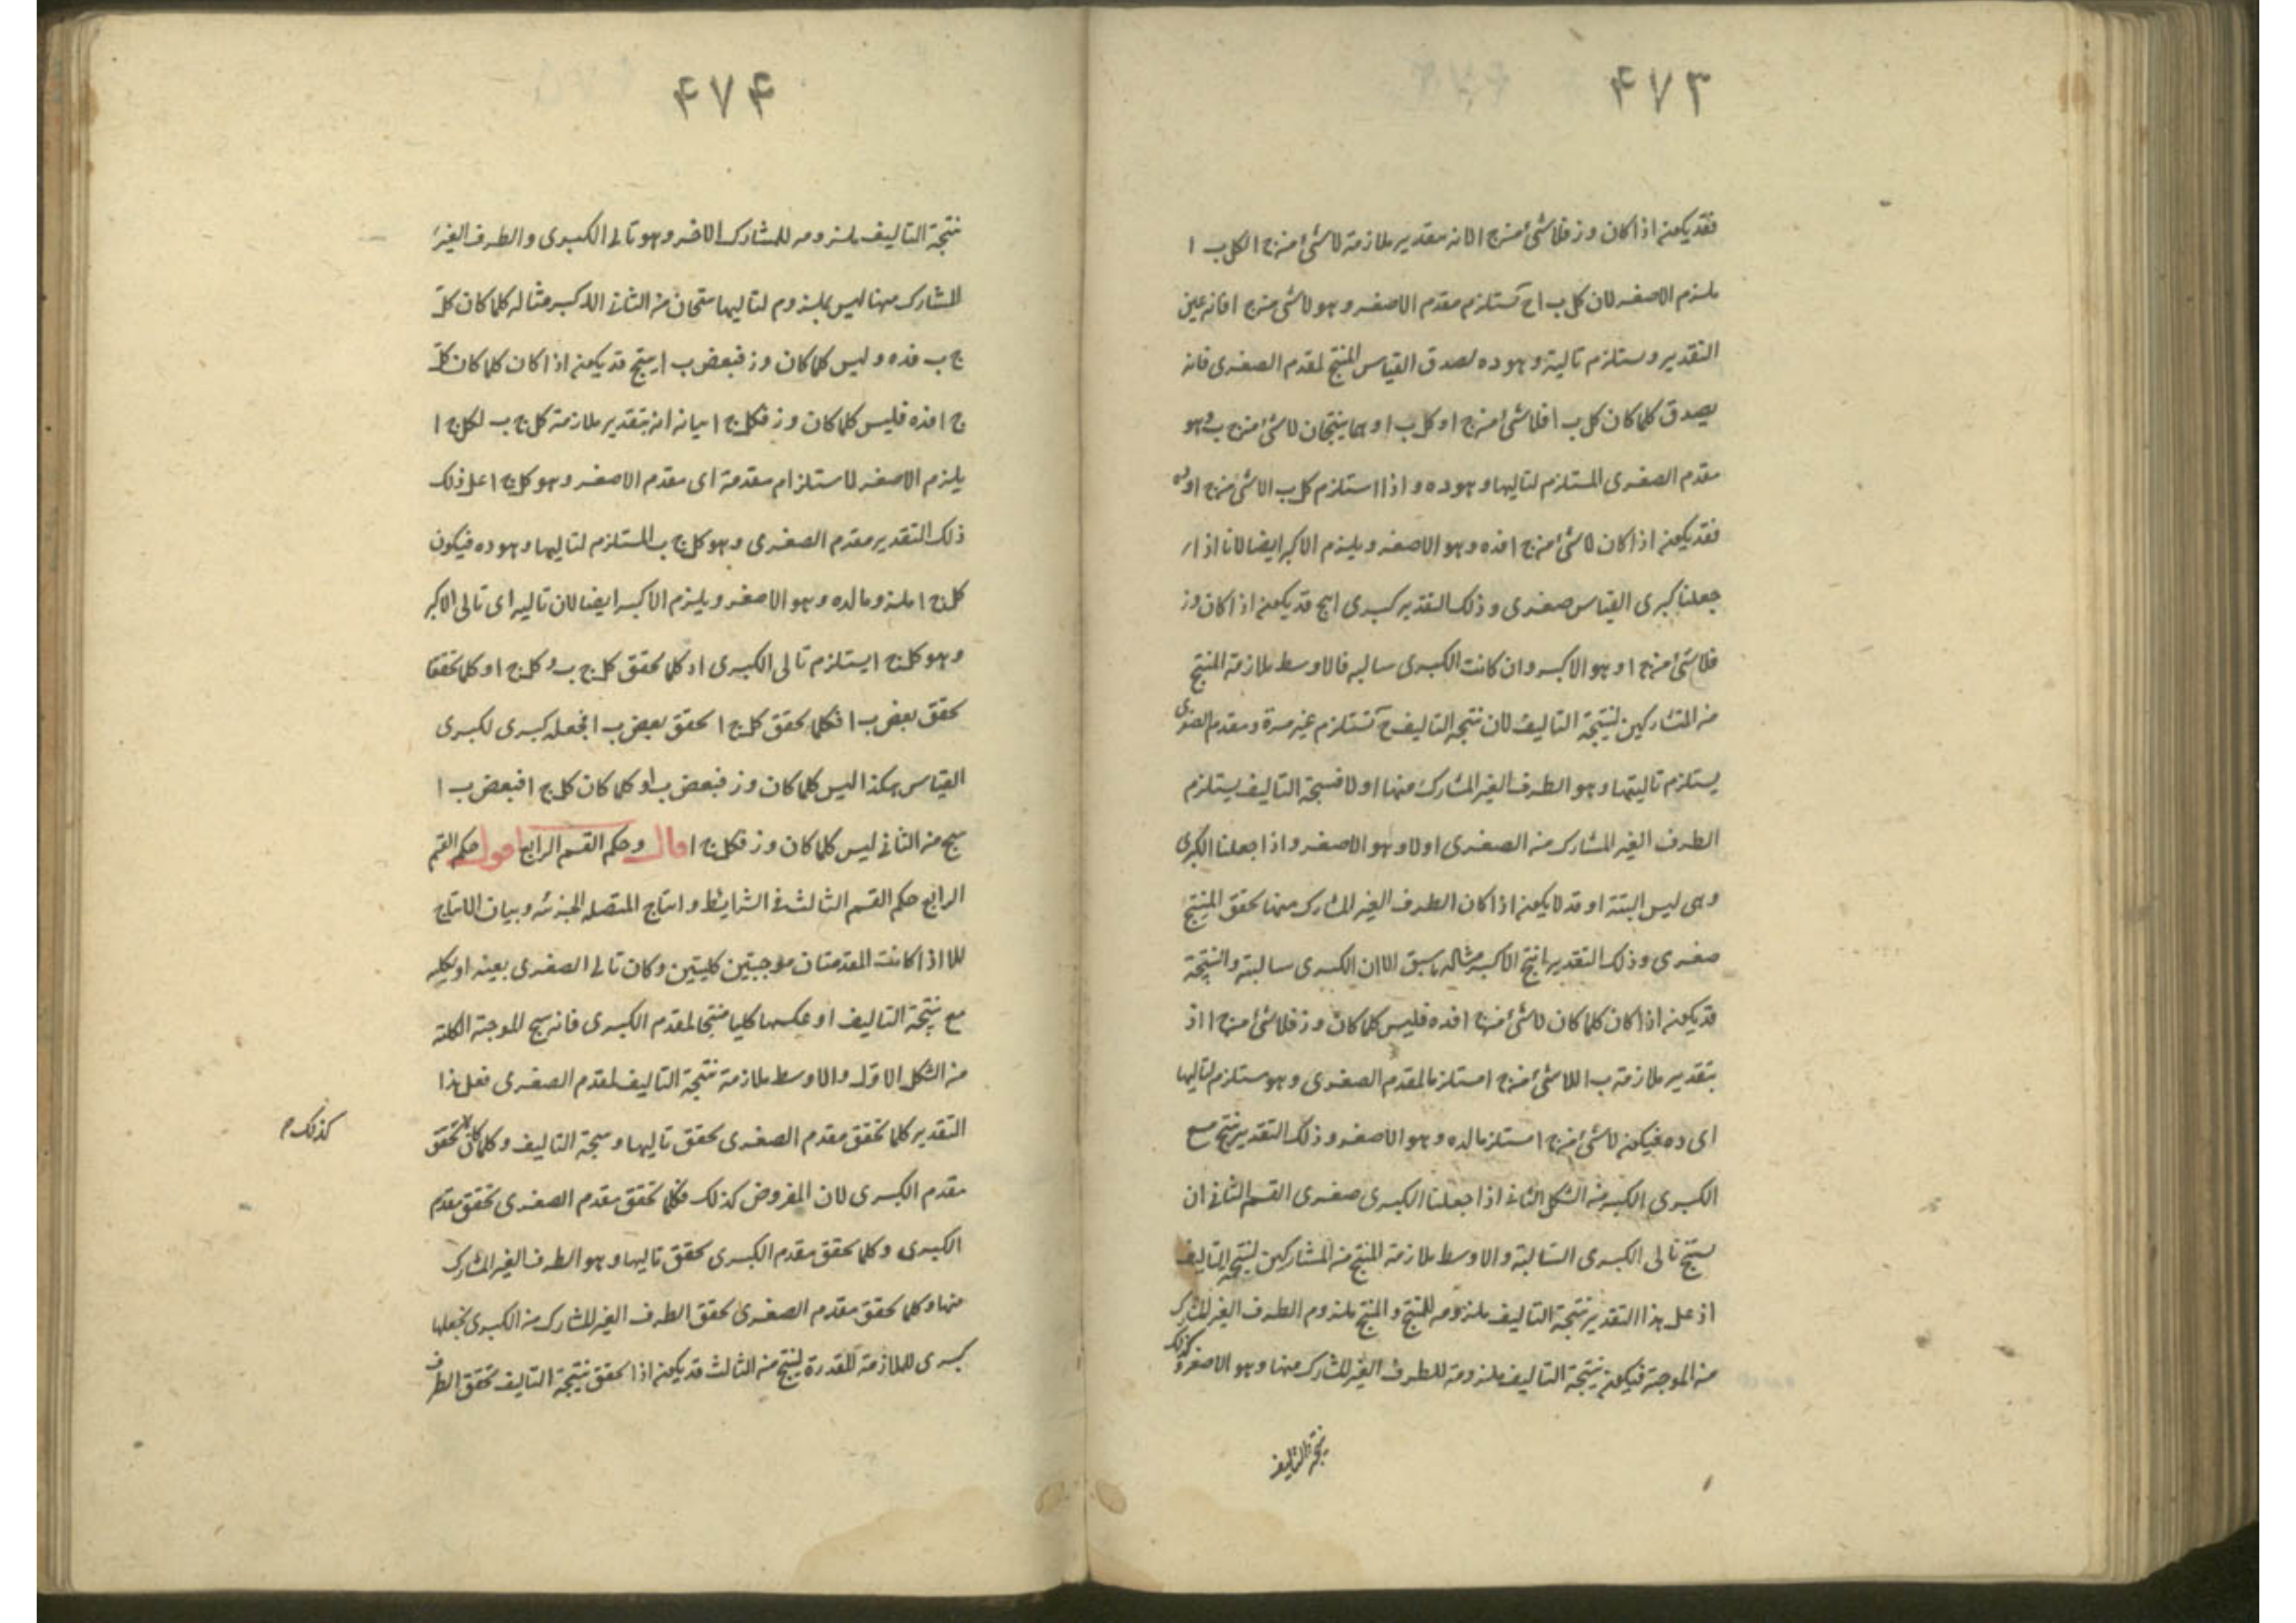 ۴۷۳
فقد يكون اذا كان وز فلا شئ من ج ا لانه بتقدير ملازمة لا شئ من ج ا لكل ب ا
يلزم الاصغر لان كل ب ا ح تستلزم مقدم الاصغر وهو لا شئ من ج ا فانه عين
التقدير ويستلزم تاليه وهو ده لصدق القياس المنتج لمقدم الصغرى فانه
يصدق كلما كان كل ب ا فلا شئ من ج ا وكل ب ا وهما ينتجان لا شئ من ج ب وهو
مقدم الصغرى المستلزم لتاليها وهو ده و اذا استلزم كل ب ا لا شئ من ج ا وده
فقد يكون اذا كان لا شئ من ج ا فده وهو الاصغر ويلزم الاكبر ايضا لانا اذا
جعلنا كبرى القياس صغرى وذلك التقدير كبرى انتج قد يكون اذا كان وز
فلا شئ من ج ا وهو الاكبر وان كانت الكبرى سالبه فالاوسط ملازمة المنتج
من المتشاركين لنتيجة التاليف لان نتيجة التاليف ح تستلزم عين مرة ومقدم الصغرى
يستلزم تاليها وهو الطرف الغير المشارك منها اولا فنتيجة التاليف يستلزم
الطرف الغير المشارك من الصغرى اولا وهو الاصغر واذا جعلنا الكبرى
وهى ليس البتة او قد لا يكون اذا كان الطرف الغير المشارك منها تحقق المنتج
صغرى وذلك التقدير انتج الاكبر مثاله ما سبق الا ان الكبرى سالبة والنتيجة
قد يكون اذا كان كلما كان لا شئ من ج ا فده فليس كلما كان وز فلا شئ من ج ا اذ
بتقدير ملازمة ب ا للا شئ من ج ا مستلزما لمقدم الصغرى وهو مستلزم لتاليها
اى ده فيكون لا شئ من ج ا مستلزما لده وهو الاصغر وذلك التقدير ينتج مع
الكبرى الاكبر من الشكل الثانى اذا جعلنا الكبرى صغرى القسم الثانى ان
ينتج تالى الكبرى السالبة والاوسط ملازمة المنتج من المتشاركين لنتيجة التاليف
اذ على هذا التقدير نتيجة التاليف ملزومه للمنتج والمنتج ملزوم الطرف الغير المشارك
من الموجبة فيكون نتيجة التاليف ملزومة للطرف الغير المشارك منها وهو الاصغر وكذلك
نتيجة التاليف
۴۷۴
نتيجة التاليف ملزومه للمشارك الاخر وهو تالى الكبرى والطرف الغير
المشارك منها ليس بملزوم لتاليها ينتجان من الثانى الاكبر مثاله كلما كان كل
ج ب فده وليس كلما كان وز فبعض ب ا ينتج قد يكون اذا كان كلما كان كل
ج ا فده فليس كلما كان وز فكل ج ا بيانه انه بتقدير ملازمة كل ج ب لكل ج ا
يلزم الاصغر لاستلزام مقدمة اى مقدم الاصغر وهو كل ج ا على ذلك
ذلك التقدير مقدم الصغرى وهو كل ج ب المستلزم لتاليها وهو ده فيكون
كل ج ا ملزوما لده وهو الاصغر ويلزم الاكبر ايضا لان تاليه اى تالى الاكبر
وهو كل ج ا يستلزم تالى الكبرى اذ كلما تحقق كل ج ب و كل ج ا وكلما تحققا
تحقق بعض ب ا فكلما تحقق كل ج ا تحقق بعض ب ا نجعله كبرى لكبرى
القياس هكذا ليس كلما كان وز فبعض ب ا و كلما كان كل ج ا فبعض ب ا
ينتج من الثانى ليس كلما كان وز فكل ج ا قال وحكم القسم الرابع اقول حكم القسم
الرابع حكم القسم الثالث فى الشرايط وانتاج المتصله الجزئيه وبيان الانتاج
الا اذا كانت المقدمتان موجبتين كليتين وكان تالى الصغرى بعينه او بكليه
مع نتيجة التاليف او عكسها كليا منتجا لمقدم الكبرى فانه ينتج الموجبة الكلية
من الشكل الاول والاوسط ملازمة نتيجة التاليف لمقدم الصغرى فعلى هذا
التقدير كلما تحقق مقدم الصغرى تحقق تاليها ونتيجة التاليف وكلما كان تحقق
كذلك م
مقدم الكبرى لان المفروض كذلك فكلما تحقق مقدم الصغرى تحقق مقدم
الكبرى وكلما تحقق مقدم الكبرى تحقق تاليها وهو الطرف الغير المشارك
منها وكلما تحقق مقدم الصغرى تحقق الطرف الغير المشارك من الكبرى نجعلها
كبرى للملازمة المقدرة لينتج من الثالث قد يكون اذا تحقق نتيجة التاليف تحقق الطرف